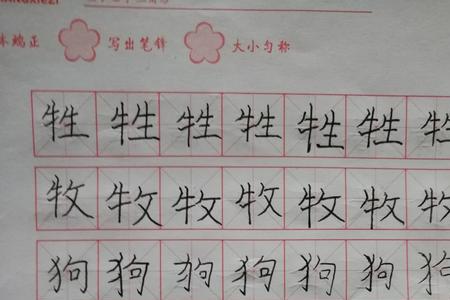 体端正 写出笔锋 大小匀称
牲 牲 牲 牲 牲 牲 牲
牧 牧 牧 牧 牧 牧 牧
狗 狗 狗 狗 狗 狗 狗